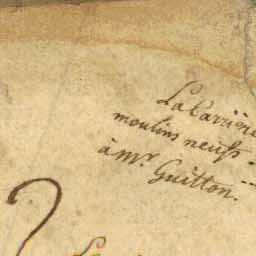 La Carrière
moulins neufs.
à Mr. Guitton.